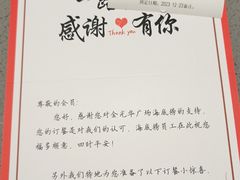 预定日期: 2023 12 23备注:
感谢 有你
尊敬的会员:
您好, 感谢您对金元华广场海底捞的支持,
您的订餐是对我们的认可, 海底捞员工在此祝您
福多顺意, 四时平安!
另外我们特地为您准备了以下订餐小惊喜,